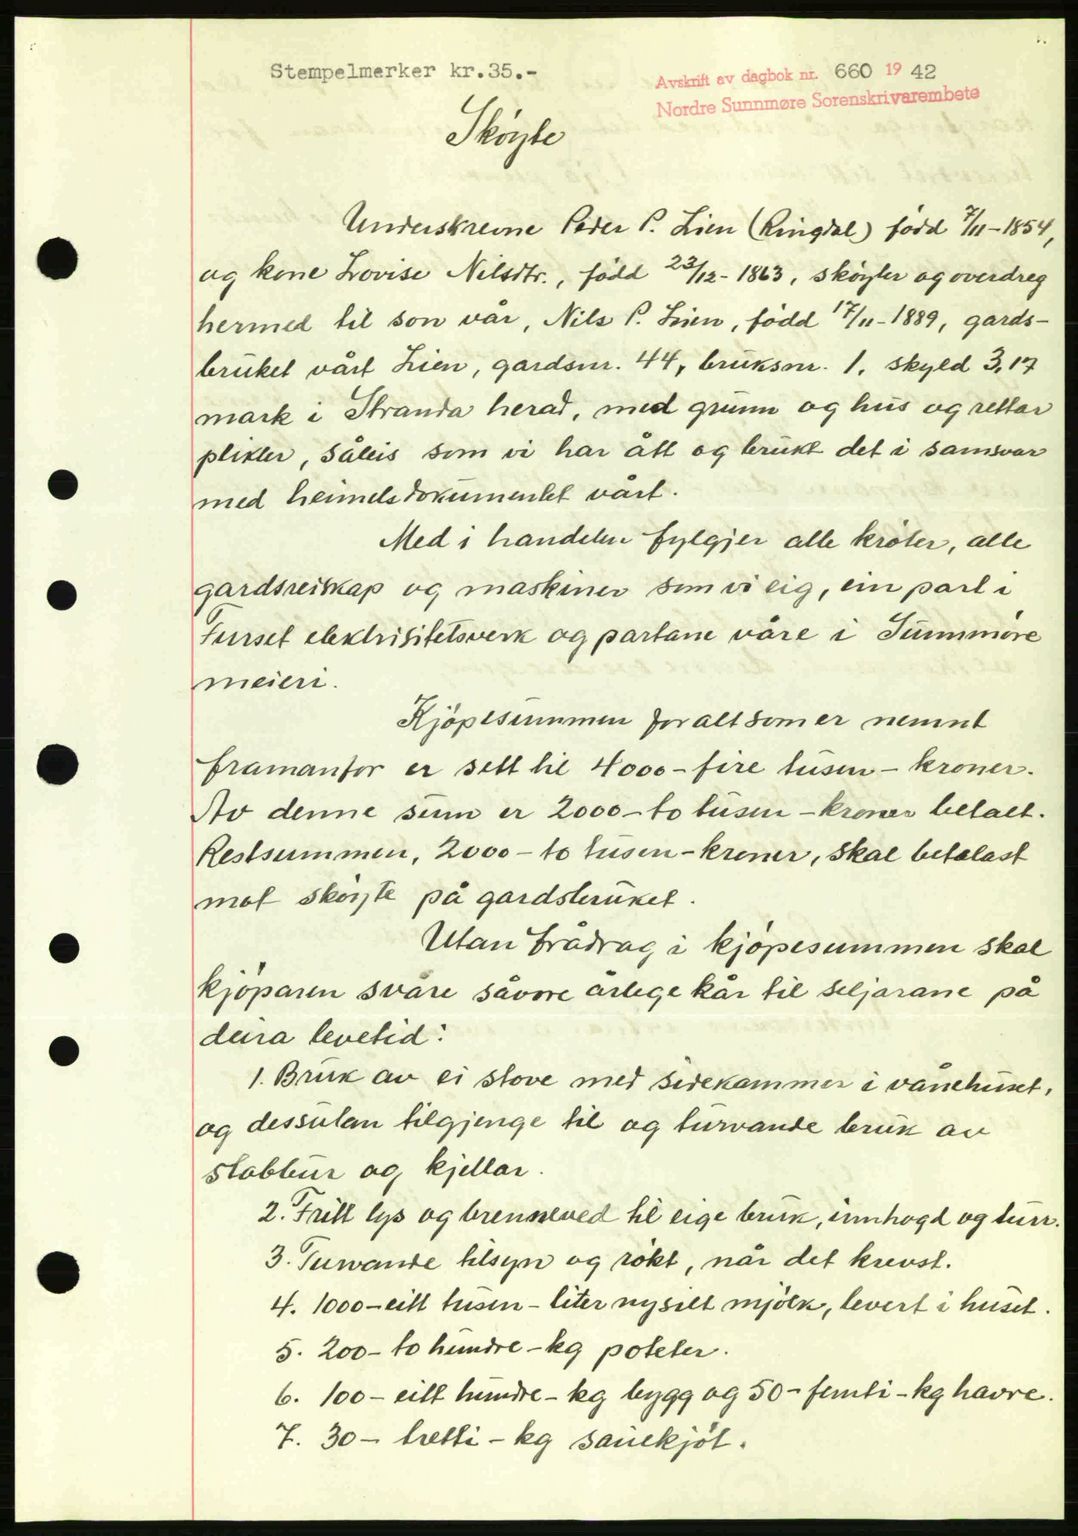 Stempelmerker kr.35.-
Avskrift av dagbok nr. 660 1942
Nordre Sunnmøre Sorenskrivarembete
Skøyte
Underskrevne Peder P. Lien (Ringdal) fødd 7/11-1854,
og kone Lovise Nilsdtr., fødd 23/12-1863, skøyter og overdreg
hermed til son vår, Nils P. Lien, fødd 17/11-1889, gards-
bruket vårt Lien, gardsnr. 44, bruksnr. 1, skyld 3,17
mark i Stranda herad, med grunn og hus og rettar
plikter, såleis som vi har ått og brukt det i samsvar
med heimelsdokumentet vårt.
Med i handelen fylgjer alle krøter, alle
gardsreiskap og maskiner som vi eig, ein part i
Furset elektrisitetsverk og partane våre i Sunnmøre
meieri.
Kjøpesummen for alt som er nemnt
framanfor er sett til 4000-fire tusen-kroner.
Av denne sum er 2000-to tusen-kroner betalt.
Restsummen, 2000-to tusen-kroner, skal betalast
mot skøyte på gardsbruket.
Utan frådrag i kjøpesummen skal
kjøparen svare såvore årlege kår til seljarane på
deira levetid:
1. Bruk av ei stove med sidekammer i vånehuset,
og dessutan tilgjenge til og turvande bruk av
stabbur og kjellar.
2. Fritt lys og brenneved til eige bruk, innhogd og turr.
3. Turvande tilsyn og røkt, når det krevst.
4. 1000-eitt tusen-liter nysilt mjølk, levert i huset.
5. 200-to hundre-kg poteter.
6. 100-eitt hundre-kg bygg og 50-femti-kg havre.
7. 30-tretti-kg sauekjøt.